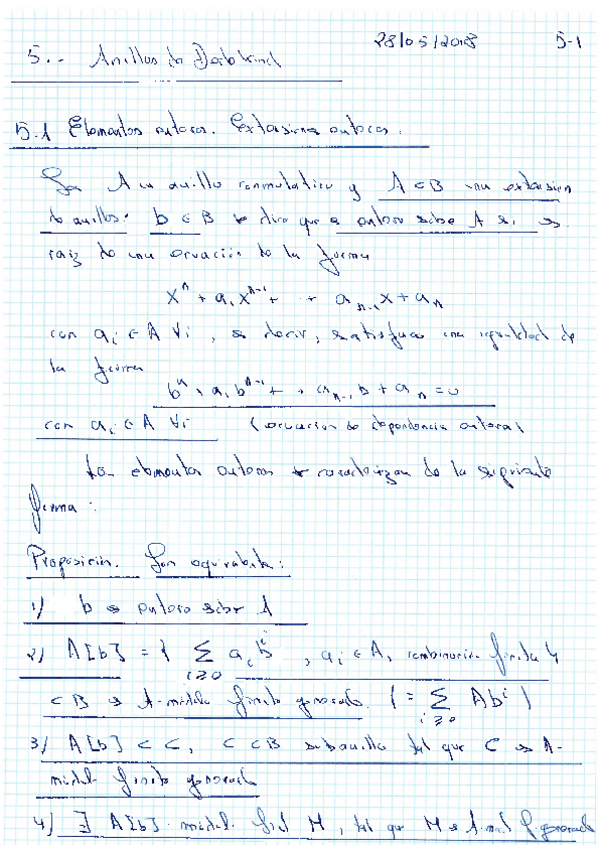 28/05/2018 5-1
5.- Anillos de Dedekind
5.1 Elementos enteros. Extensiones enteras.
Sea A un anillo conmutativo y A ⊂ B una extensión
de anillos. b ∈ B se dice que es entero sobre A si es
raíz de una ecuación de la forma
xⁿ + a₁xⁿ⁻¹ + + aₙ₋₁x + aₙ
con aᵢ ∈ A ∀i, es decir, satisface una igualdad de
la forma
bⁿ + a₁bⁿ⁻¹ + + aₙ₋₁b + aₙ = 0
con aᵢ ∈ A ∀i (ecuación de dependencia entera)
Los elementos enteros se caracterizan de la siguiente
forma:
Proposición. Son equivalentes:
1) b es entero sobre A
2) A[b] = { Σ aᵢbⁱ, aᵢ ∈ A, combinación finita }
i≥0
⊂ B es A-módulo finito generado. ( = Σ Abⁱ )
i≥0
3) A[b] ⊂ C, C ⊂ B subanillo tal que C es A-
módulo finito generado
4) ∃ A[b]-módulo fiel M, tal que M es A-mod f. generado